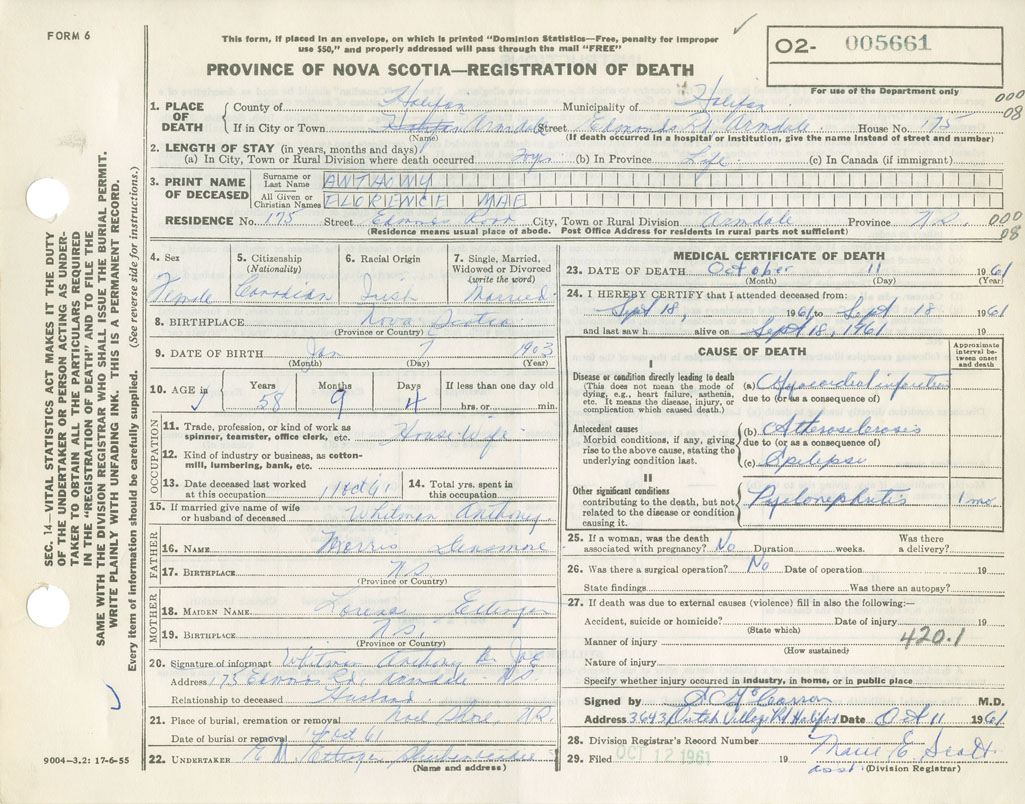 FORM 6
This form, if placed in an envelope, on which is printed "Dominion Statistics—Free, penalty for improper
use $50," and properly addressed will pass through the mail "FREE"
PROVINCE OF NOVA SCOTIA—REGISTRATION OF DEATH
O2- 005661
For use of the Department only
000
08
1. PLACE OF DEATH
County of Halifax Municipality of Halifax
If in City or Town Halifax Armdale Street Edmonds Rd Armdale House No. 175
(Name) (If death occurred in a hospital or institution, give the name instead of street and number)
2. LENGTH OF STAY (in years, months and days)
(a) In City, Town or Rural Division where death occurred (b) In Province Life (c) In Canada (if immigrant)
3. PRINT NAME OF DECEASED
Surname or Last Name ANTHONY
All Given or Christian Names FLORENCE MAE
RESIDENCE No. 175 Street Edmonds Road City, Town or Rural Division Armdale Province N.S.
(Residence means usual place of abode. Post Office Address for residents in rural parts not sufficient)
000
08
4. Sex
Female
5. Citizenship
(Nationality)
Canadian
6. Racial Origin
Irish
7. Single, Married, Widowed or Divorced
(write the word)
Married
8. BIRTHPLACE Nova Scotia
(Province or Country)
9. DATE OF BIRTH Jan 7 1903
(Month) (Day) (Year)
10. AGE in Years Months Days If less than one day old
58 9 4 hrs. or min.
OCCUPATION
11. Trade, profession, or kind of work as spinner, teamster, office clerk, etc. House Wife
12. Kind of industry or business, as cotton-mill, lumbering, bank, etc.
13. Date deceased last worked at this occupation 11 Oct 61
14. Total yrs. spent in this occupation
15. If married give name of wife or husband of deceased Whitman Anthony
FATHER
16. NAME Morris Densmore
17. BIRTHPLACE N.S.
(Province or Country)
MOTHER
18. MAIDEN NAME
19. BIRTHPLACE N.S.
(Province or Country)
20. Signature of informant Whitman Anthony
Address 175 Edmonds Rd. Armdale N.S.
Relationship to deceased Husband
21. Place of burial, cremation or removal Noel Shore, N.S.
Date of burial or removal Oct 61
22. UNDERTAKER
(Name and address)
MEDICAL CERTIFICATE OF DEATH
23. DATE OF DEATH October 11 1961
(Month) (Day) (Year)
24. I HEREBY CERTIFY that I attended deceased from:
Sept 18, 1961 to Sept 18 1961
and last saw h alive on Sept 18, 1961 19
CAUSE OF DEATH
Approximate interval between onset and death
I
Disease or condition directly leading to death
(This does not mean the mode of dying, e.g., heart failure, asthenia, etc. It means the disease, injury, or complication which caused death.)
(a) Myocardial infarction
due to (or as a consequence of)
Antecedent causes
Morbid conditions, if any, giving rise to the above cause, stating the underlying condition last.
(b) Atherosclerosis
due to (or as a consequence of)
(c) Epilepsy
II
Other significant conditions
contributing to the death, but not related to the disease or condition causing it.
Pyelonephritis 1 mo.
25. If a woman, was the death associated with pregnancy? No Duration weeks. Was there a delivery?
26. Was there a surgical operation? No Date of operation 19
State findings Was there an autopsy?
27. If death was due to external causes (violence) fill in also the following:—
Accident, suicide or homicide? Date of injury 19
(State which)
Manner of injury 420.1
(How sustained)
Nature of injury
Specify whether injury occurred in industry, in home, or in public place
Signed by M.D.
Address 3643 Dutch Village Rd Halifax Date Oct 11 1961
28. Division Registrar's Record Number
29. Filed OCT 12 1961 19 Marie E Scott
asst. (Division Registrar)
SEC. 14—VITAL STATISTICS ACT MAKES IT THE DUTY
OF THE UNDERTAKER OR PERSON ACTING AS UNDER-
TAKER TO OBTAIN ALL THE PARTICULARS REQUIRED
IN THE "REGISTRATION OF DEATH" AND TO FILE THE
SAME WITH THE DIVISION REGISTRAR WHO SHALL ISSUE THE BURIAL PERMIT.
WRITE PLAINLY WITH UNFADING INK. THIS IS A PERMANENT RECORD.
Every item of information should be carefully supplied. (See reverse side for instructions.)
9004—3.2: 17-6-55